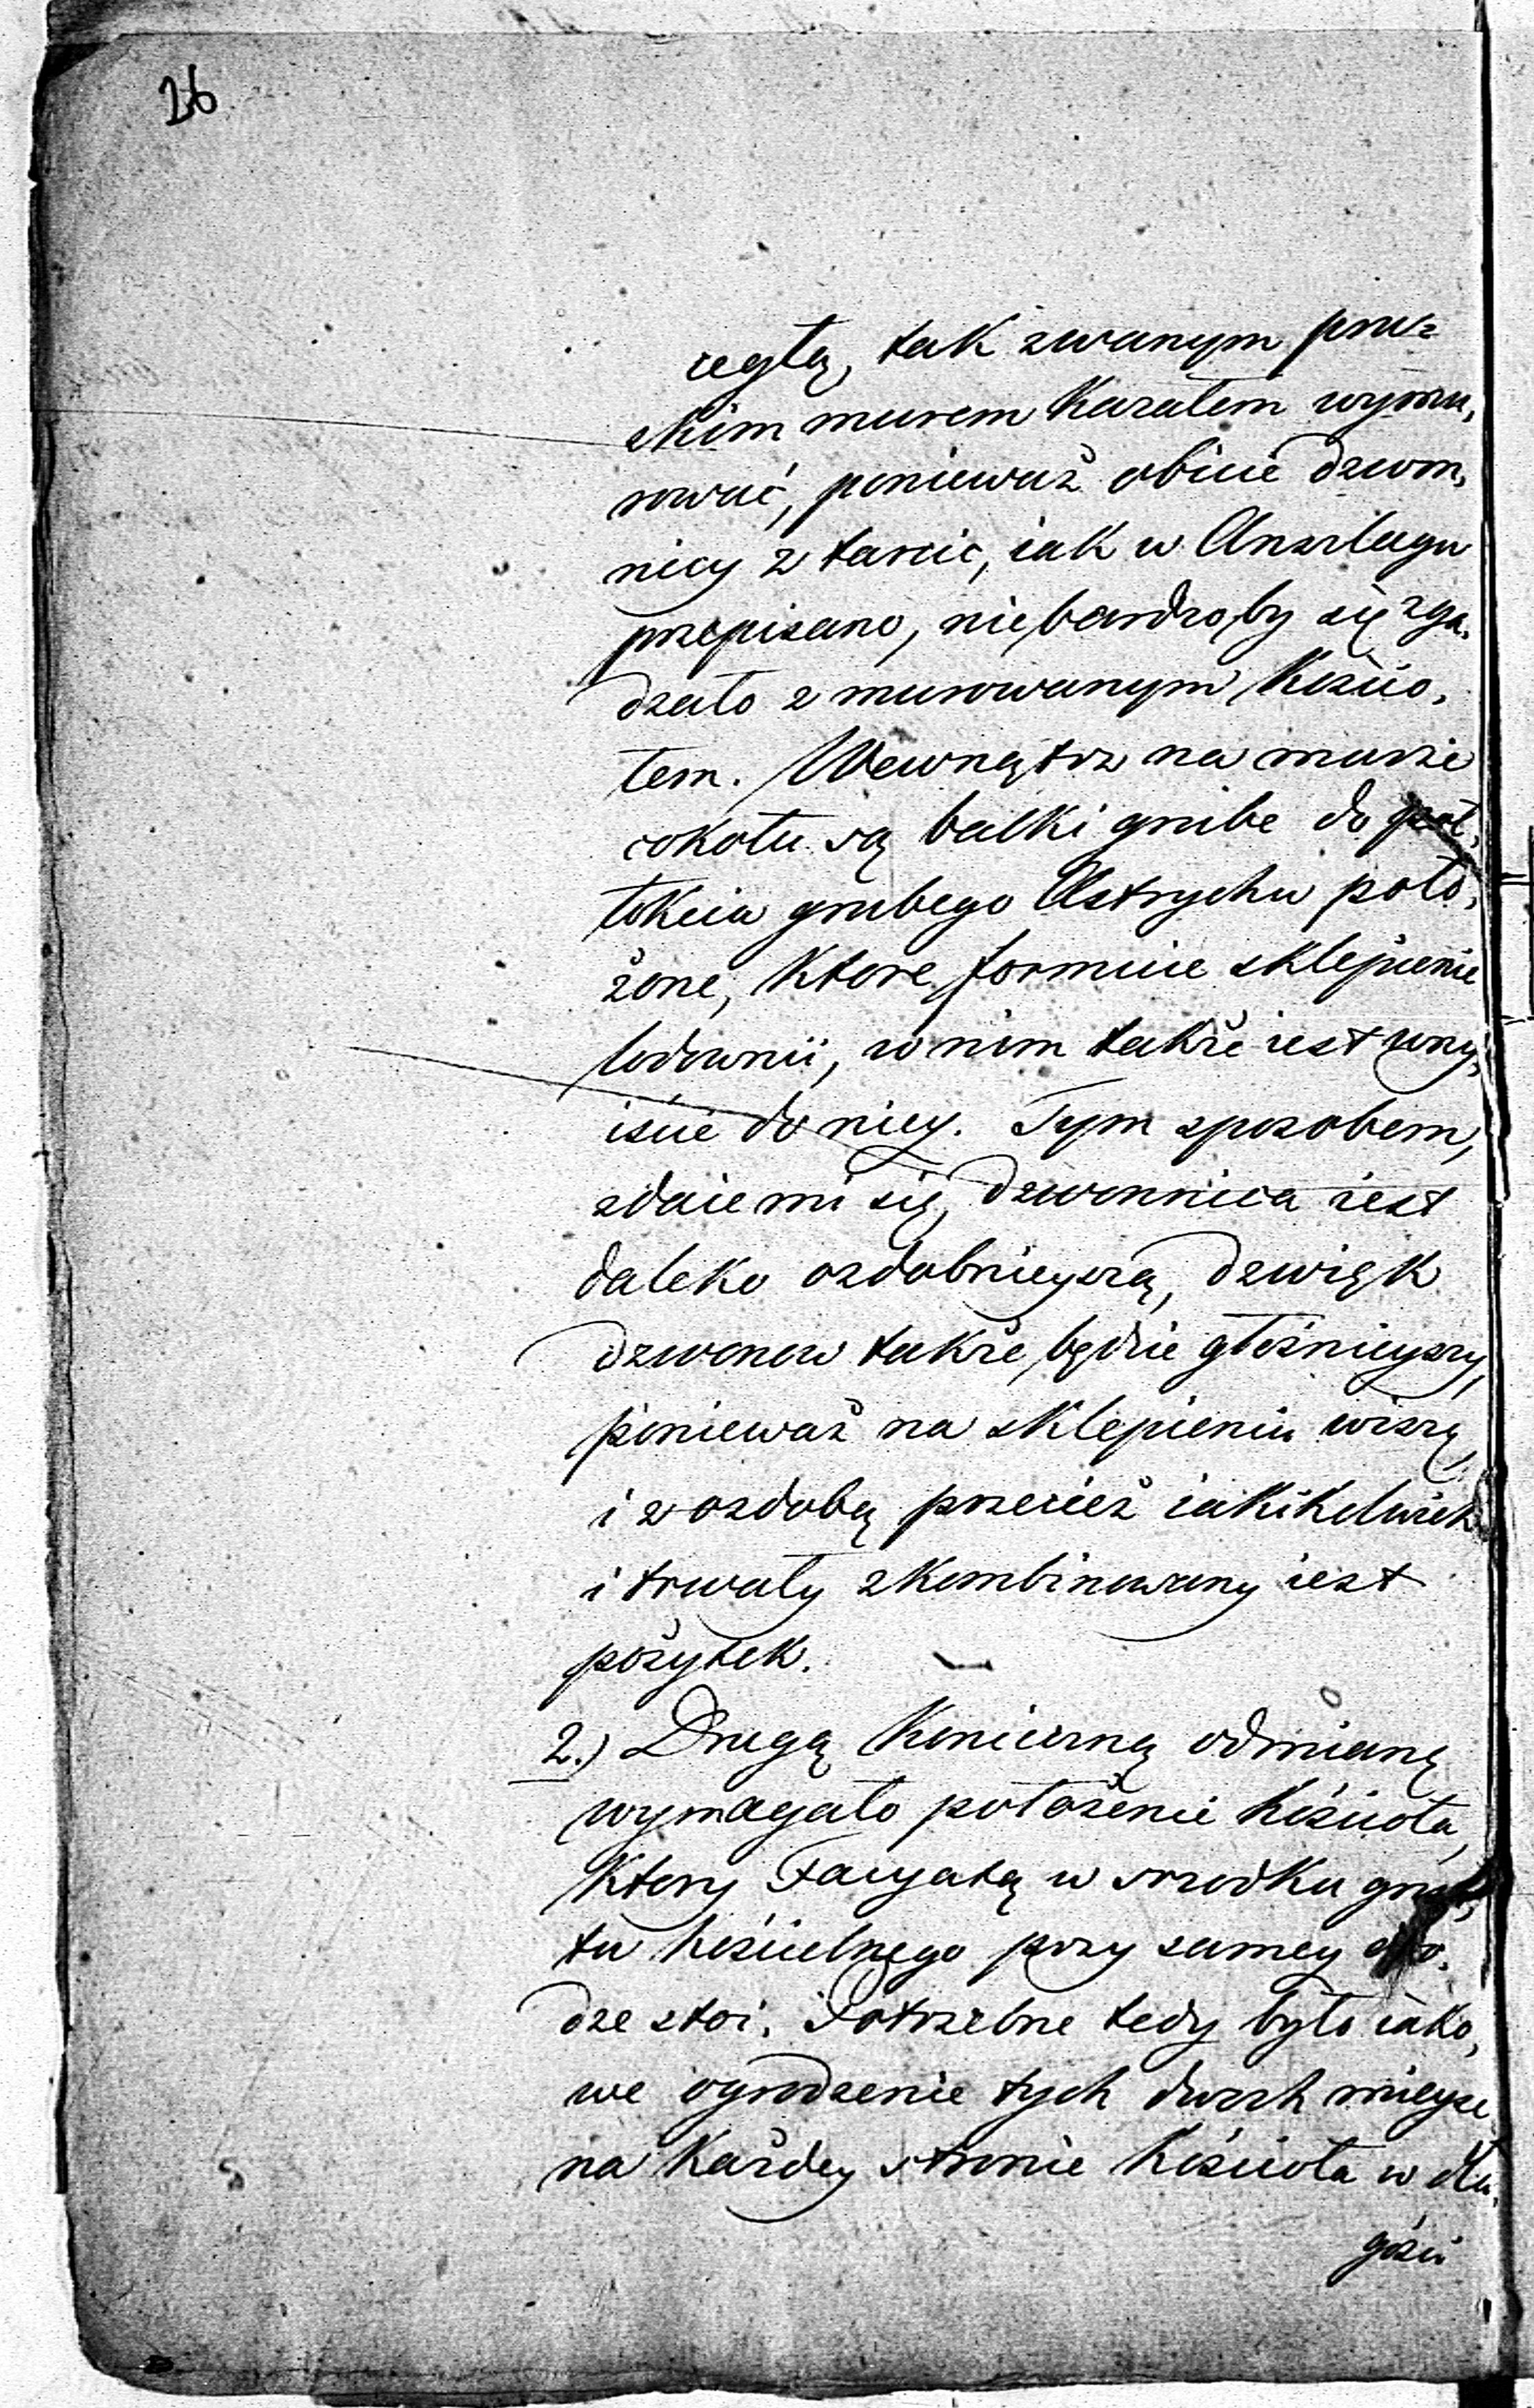 26
cegłą, tak zwanym pru=
skim murem kazałem wymu,
rować, ponieważ obicie dzwon,
nicy z tarcic, iak w Anszlagu
przepisano, niebardzoby się zga,
dzało z murowanym kościo,
łem. Wewnątrz na murze
cokołu są balki grube do pół,
łokcia grubego Astrychu poło,
żone, ktore formuie sklepienie
lodownii, w nim także iest wny,
iście do niey. Tym sposobem,
zdaie mi się, dzwonnica iest
daleko ozdobnieyszą, dzwięk
dzwonow także będzie głośnieyszy,
ponieważ na sklepieniu wiszą
i z ozdobą przecież iakikolwiek
i trwały zkombinowany iest
pożytek.
2.) Drugą konieczną odmianę
wymagało położenie kościoła,
ktory Facyatą w srzodku grun,
tu kościelnego przy samey dro,
dze stoi. Potrzebne tedy było iako,
we ogrodzenie tych dwoch mieysc
na każdey stronie kościoła w dłu,
gości